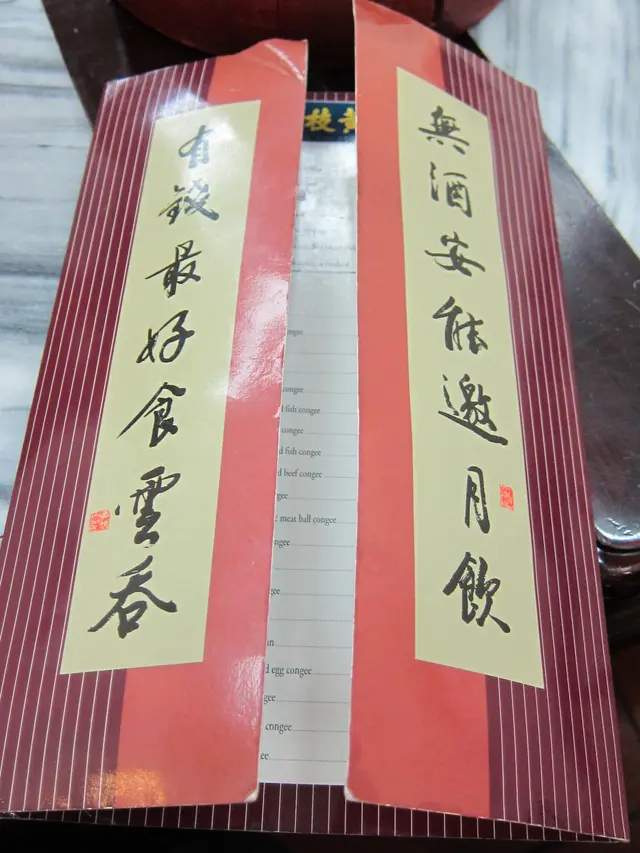 無酒安能邀月飲
有錢最好食雲吞
黃枝
congee
fish congee
congee
fish congee
beef congee
meat ball congee
egg congee
congee